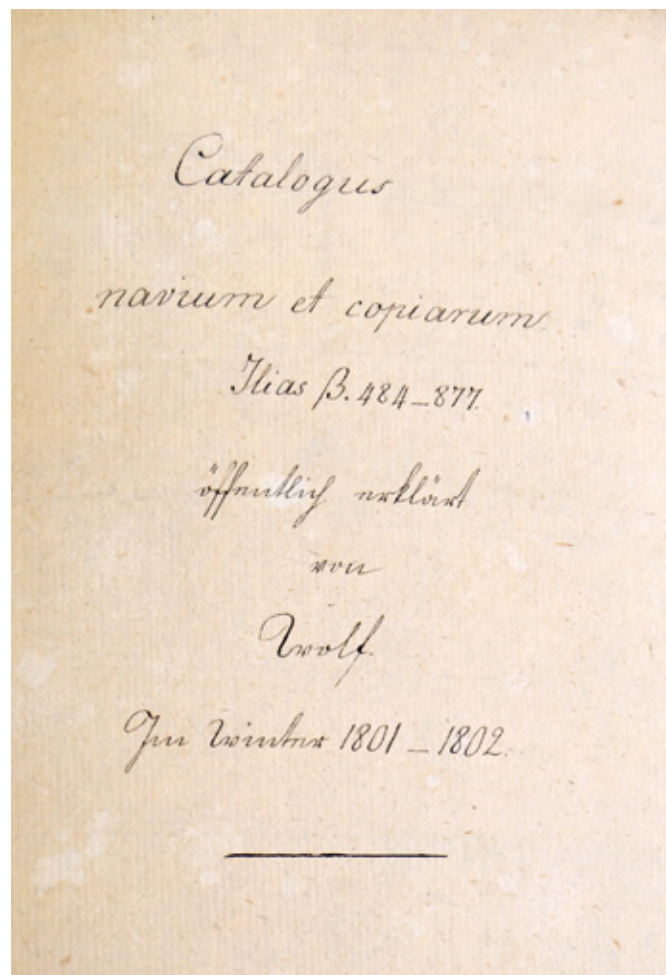 Catalogus
navium et copiarum.
Ilias β. 484_877.
öffentlich erklärt
von
Wolf.
Im Winter 1801_1802.